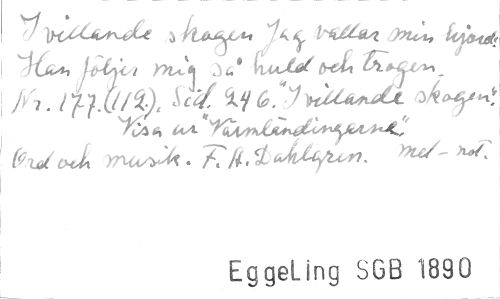 I villande skogen Jag vallar min hjord:
Han följer mig så huld och trogen.
Nr. 177.(112.), Sid. 246. "I villande skogen".
Visa ur "Värmländingarne".
Ord och musik. F. A. Dahlgren. mel-not.
EggeLing SGB 1890